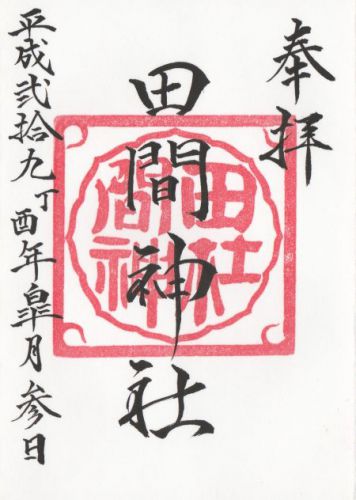 奉拝
田間神社
田間神社
平成弐拾九丁酉年皐月参日